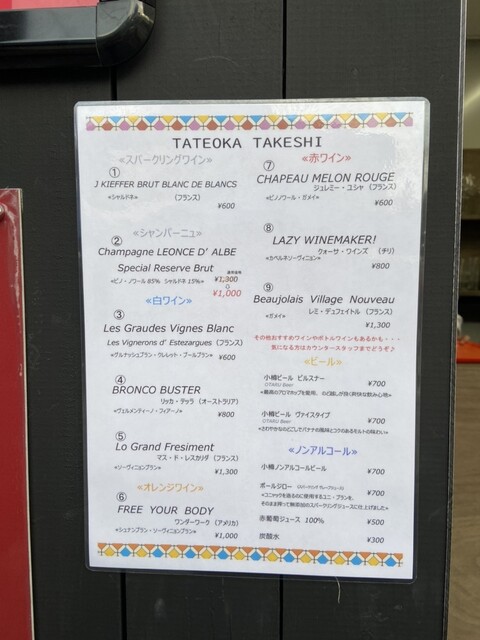 TATEOKA TAKESHI
≪スパークリングワイン≫
①
J KIEFFER BRUT BLANC DE BLANCS
≪シャルドネ≫ (フランス)
¥600
≪シャンパーニュ≫
②
Champagne LEONCE D' ALBE
Special Reserve Brut
≪ピノ・ノワール 85% シャルドネ 15%≫ ¥1,300
¥1,000
≪白ワイン≫
③
Les Graudes Vignes Blanc
Les Vignerons d' Estezargues (フランス)
≪グルナッシュブラン・クレレット・ブールブラン≫ ¥600
④
BRONCO BUSTER
リッカ・テッラ (オーストラリア)
≪ヴェルメンティーノ・フィアーノ≫ ¥800
⑤
Lo Grand Fresiment
マス・ド・レスカリダ (フランス)
≪ソーヴィニョンブラン≫ ¥1,300
≪オレンジワイン≫
⑥
FREE YOUR BODY
ワンダーワーク (アメリカ)
≪シュナンブラン・ソーヴィニョンブラン≫ ¥1,000
≪赤ワイン≫
⑦
CHAPEAU MELON ROUGE
ジェレミー・ユシャ (フランス)
≪ピノノワール・ガメイ≫
¥600
⑧
LAZY WINEMAKER!
クォーサ・ワインズ (チリ)
≪カベルネソーヴィニョン≫ ¥800
⑨
Beaujolais Village Nouveau
≪ガメイ≫ レミ・デュフェイトル (フランス)
¥1,300
その他おすすめワインやボトルワインもあるかも・・・
気になる方はカウンタースタッフまでどうぞ♪
≪ビール≫
小樽ビール ピルスナー ¥700
OTARU Beer
≪最高のアロマホップを使用、のど越しが良く爽快な飲み心地≫
小樽ビール ヴァイスタイプ ¥700
OTARU Beer
≪さわやかなのどごしでバナナの風味とコクのあるモルトの味わい≫
≪ノンアルコール≫
小樽ノンアルコールビール ¥700
ポールジロー (スパークリンググレープジュース) ¥700
≪コニャックを造るのに使用するユニ・ブランを、
そのまま搾って無添加のスパークリングジュースに仕上げました≫
赤葡萄ジュース 100% ¥500
炭酸水 ¥300